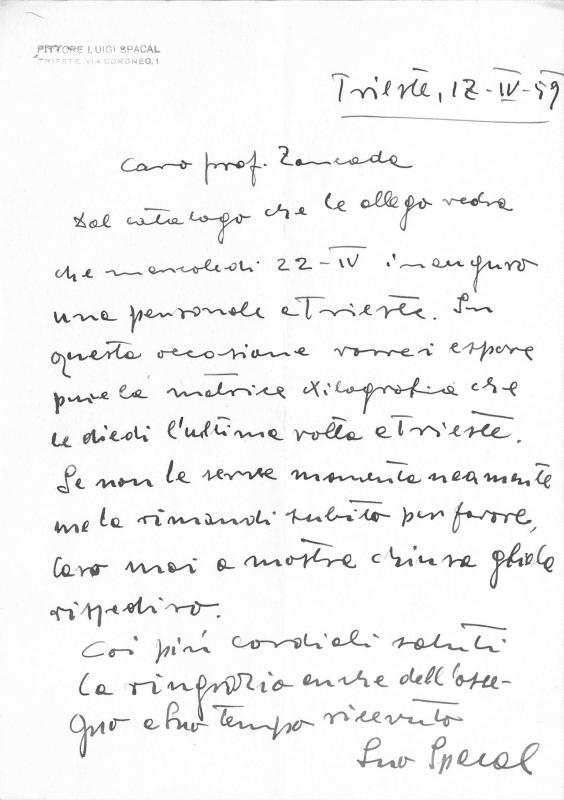 PITTORE LUIGI SPACAL
TRIESTE, VIA CORONEO, 1
Trieste, 12-IV-59
Caro prof. Zancada
Dal catalogo che le allego vedra
che mercoledi 22-IV inauguro
una personale a Trieste. In
questa occasione vorrei espore
pure la matrice xilografia che
le diedi l'ultima volta a Trieste.
Se non le serve momentaneamente
me la rimandi subito per favore,
caso mai a mostra chiusa gliela
rispediro.
Coi più cordiali saluti
la ringrazio anche dell'asse-
gno a suo tempo ricevuto
Suo Spacal